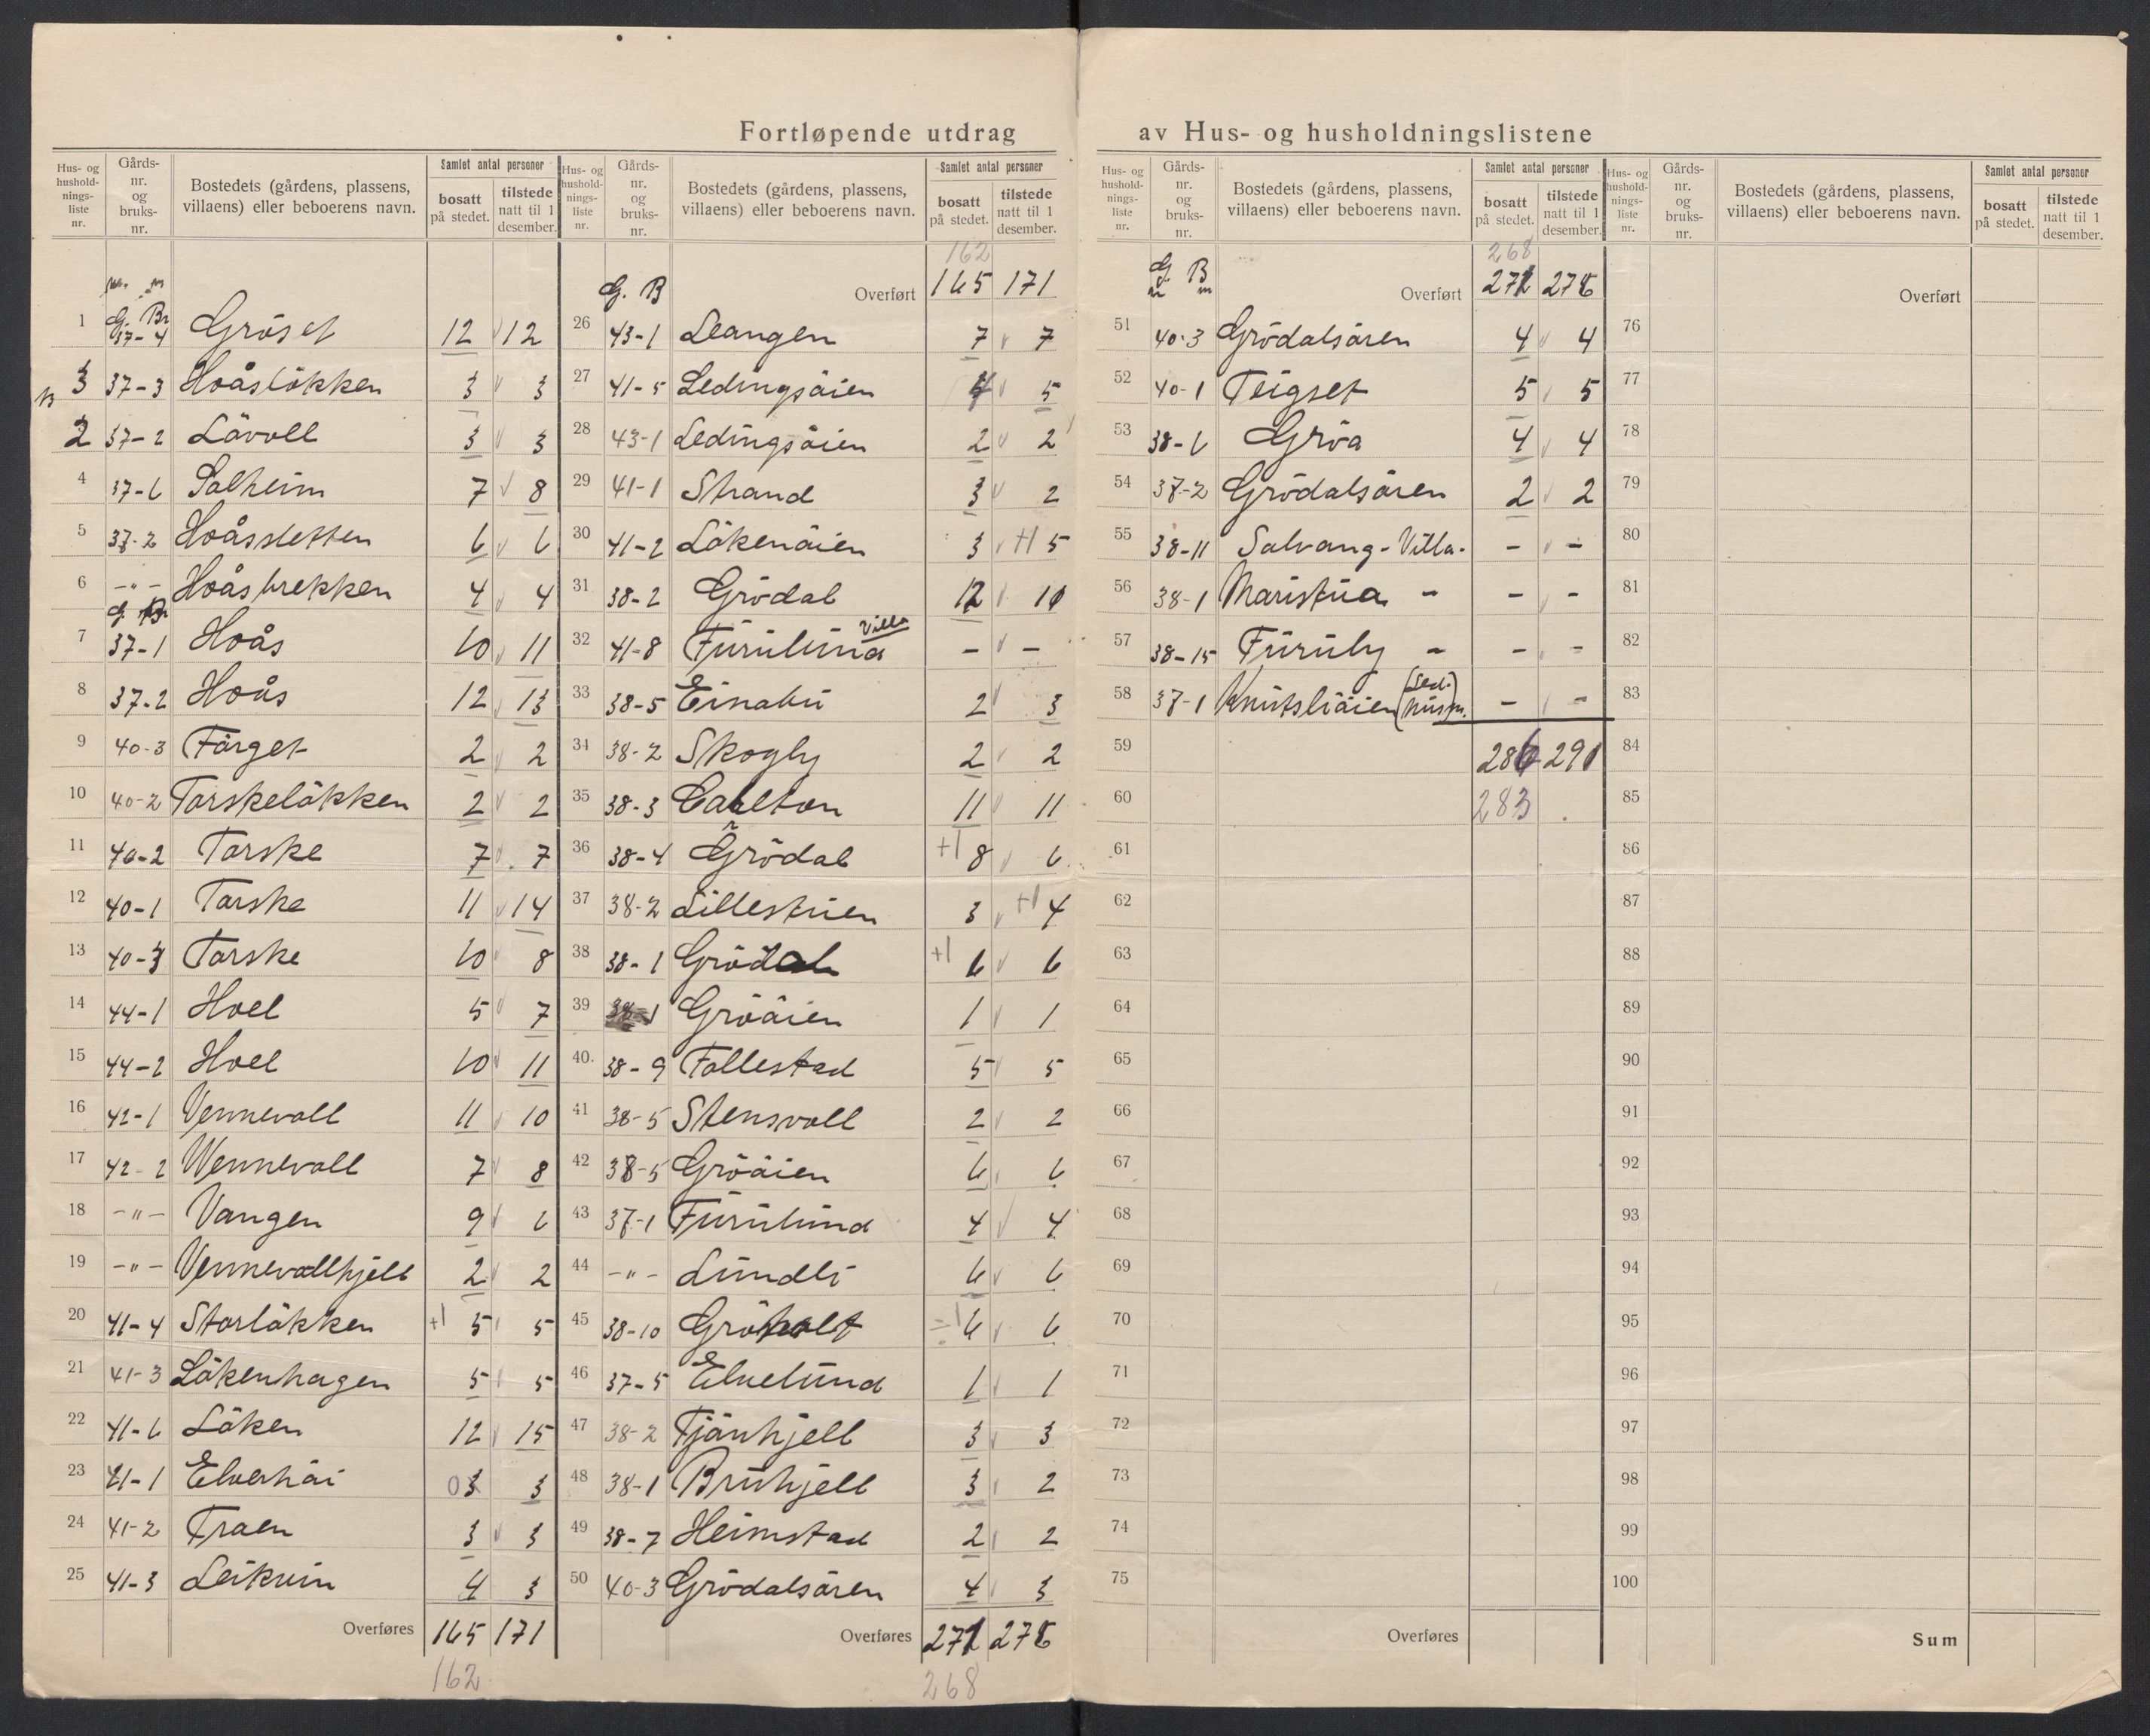 Fortløpende utdrag av Hus- og husholdningslistene
Hus- og husholdningsliste nr. Gårds-nr. og bruks-nr. Bostedets (gårdens, plassens, villaens) eller beboerens navn. Samlet antal personer bosatt på stedet. tilstede natt til 1 desember.
G. Br
1 37-4 Gröset 12 12
3 37-3 Hoåslökken 3 3
2 37-2 Lävoll 3 3
4 37-6 Solheim 7 8
5 37-2 Hoåssletten 6 6
6 -"- Hoåsbrekken 4 4
7 37-1 Hoås 10 11
8 37-2 Hoås 12 13
9 40-3 Färget 2 2
10 40-2 Torskelökken 2 2
11 40-2 Torske 7 7
12 40-1 Torske 11 14
13 40-3 Torske 10 8
14 44-1 Hoel 5 7
15 44-2 Hoel 10 11
16 42-1 Vennevoll 11 10
17 42-2 Wennevoll 7 8
18 -"- Vangen 9 6
19 -"- Vennevollhjell 2 2
20 41-4 Storlökken +1 5 5
21 41-3 Lökenhagen 5 5
22 41-6 Löken 12 15
23 41-1 Elverhöi 03 3
24 41-2 Traen 3 3
25 41-3 Leikvin 4 3
Overføres 165 171
162
Hus- og husholdningsliste nr. Gårds-nr. og bruks-nr. Bostedets (gårdens, plassens, villaens) eller beboerens navn. Samlet antal personer bosatt på stedet. tilstede natt til 1 desember.
162
G. B Overført 165 171
26 43-1 Leangen 7 7
27 41-5 Ledingsöien 4 5
28 43-1 Ledingsöien 2 2
29 41-1 Strand 3 2
30 41-2 Lökenöien 3 +1 5
31 38-2 Grödal 12 10
32 41-8 Furulund Villa - -
33 38-5 Einabu 2 3
34 38-2 Skogly 2 2
35 38-3 Carlton 11 11
36 38-4 Grödal +1 8 6
37 38-2 Lillestuen 3 +1 4
38 38-1 Grödal +1 6 6
39 38-1 Gröäien 1 1
40. 38-9 Follestad 5 5
41 38-5 Stensvoll 2 2
42 38-5 Gröäien 6 6
43 37-1 Furulund 4 4
44 -"- Lundli 6 6
45 38-10 Gröholt -1 6 6
46 37-5 Elvelund 1 1
47 38-2 Tjönhjell 3 3
48 38-1 Bruhjell 3 2
49 38-7 Heimstad 2 2
50 40-3 Grödalsären 4 3
Overføres 271 276
268
Hus- og husholdningsliste nr. Gårds-nr. og bruks-nr. Bostedets (gårdens, plassens, villaens) eller beboerens navn. Samlet antal personer bosatt på stedet. tilstede natt til 1 desember.
268
G. B Overført 271 276
51 40-3 Grödalsären 4 4
52 40-1 Teigset 5 5
53 38-6 Gröa 4 4
54 37-2 Grödalsären 2 2
55 38-11 Solvang - Villa - - -
56 38-1 Maristua - - -
57 38-15 Furuly - - -
58 37-1 Knutsliäien - -
59 286 291
60 283
61
62
63
64
65
66
67
68
69
70
71
72
73
74
75
Overføres
Hus- og husholdningsliste nr. Gårds-nr. og bruks-nr. Bostedets (gårdens, plassens, villaens) eller beboerens navn. Samlet antal personer bosatt på stedet. tilstede natt til 1 desember.
Overført
76
77
78
79
80
81
82
83
84
85
86
87
88
89
90
91
92
93
94
95
96
97
98
99
100
Sum